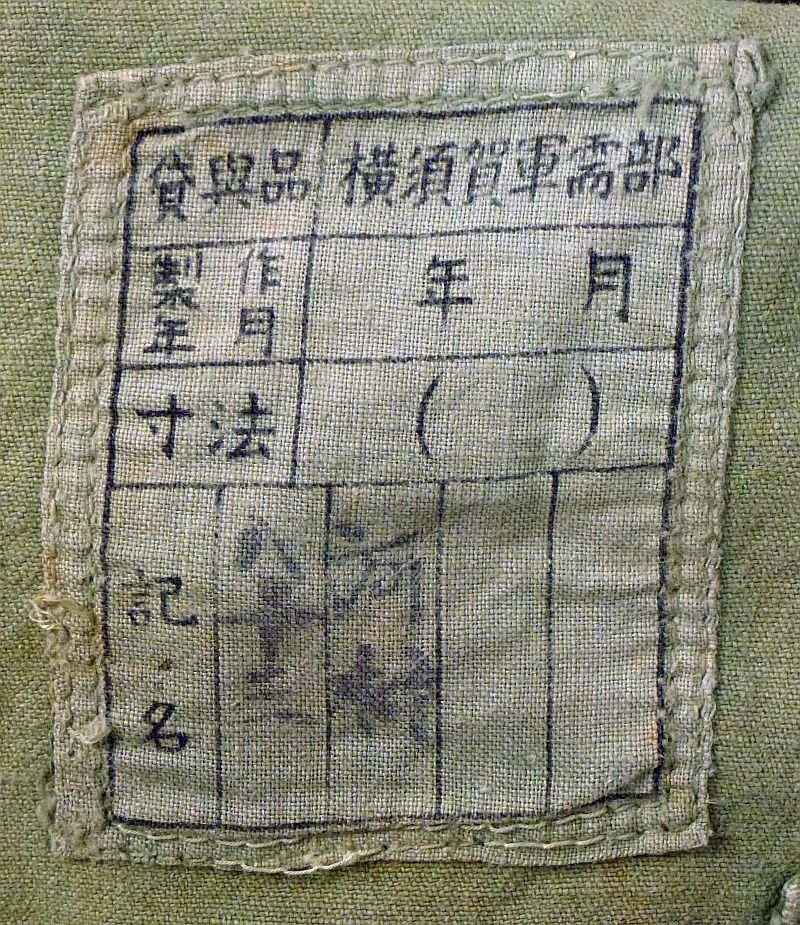 貸與品 横須賀軍需部
製作年月 年 月
寸法 ( )
記名
河村